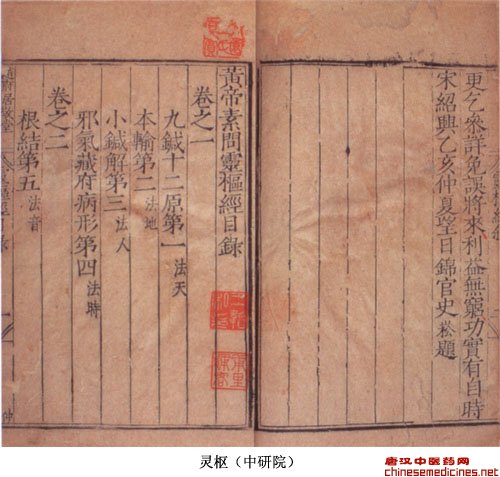 更乞參詳免誤將來利益無窮功實有自時
宋紹興乙亥仲夏望日錦官史崧題
黃帝素問靈樞經目錄
卷之一
九鍼十二原第一 法天
本輸第二 法地
小鍼解第三 法人
邪氣藏府病形第四 法時
卷之二
根結第五 法音
仲
灵枢（中研院）
唐汉中医药网
chinesemedicines.net